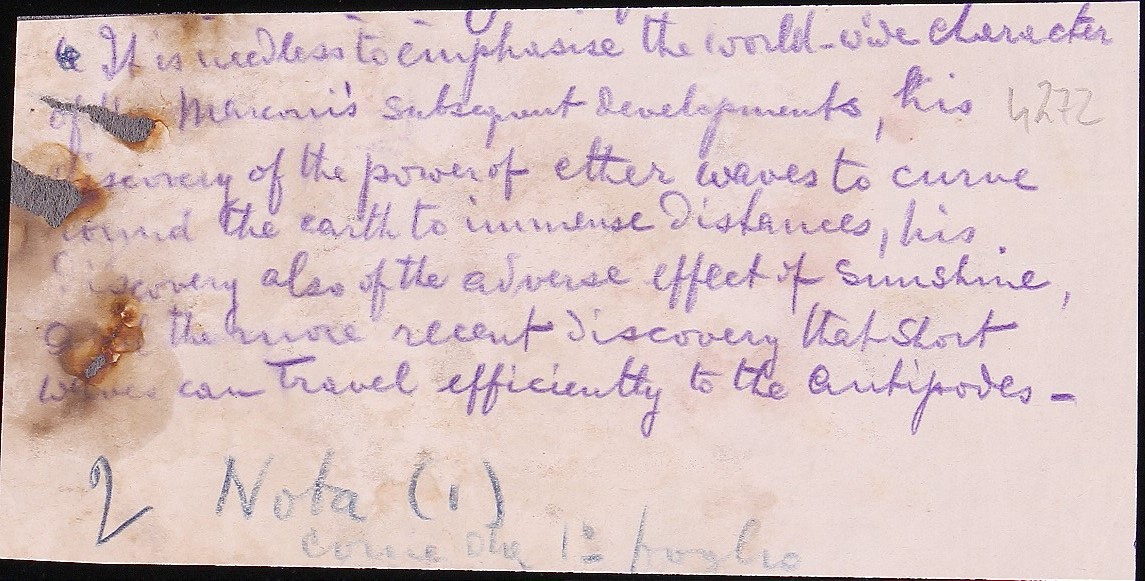 “ It is needless to emphasise the world-wide character
of Marconi's subsequent developments, his 4272
discovery of the power of ether waves to curve
round the earth to immense distances, his
discovery also of the adverse effect of sunshine,
and the more recent discovery that short
waves can travel efficiently to the antipodes -
2 Nota (1)
come 1º foglio